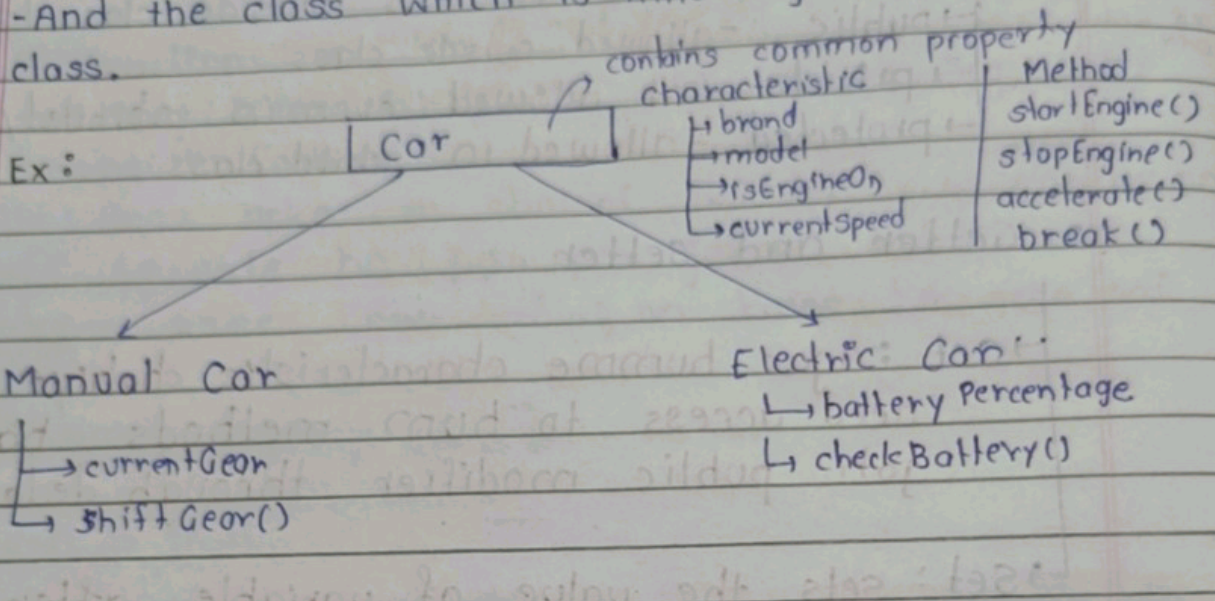 -And the class which is
class.
contains common property
characteristic
Ex:
Car
brand
model
isEngineOn
currentSpeed
Method
startEngine()
stopEngine()
accelerate()
break()
Manual Car
currentGear
shiftGear()
Electric Car
battery Percentage
checkBattery()